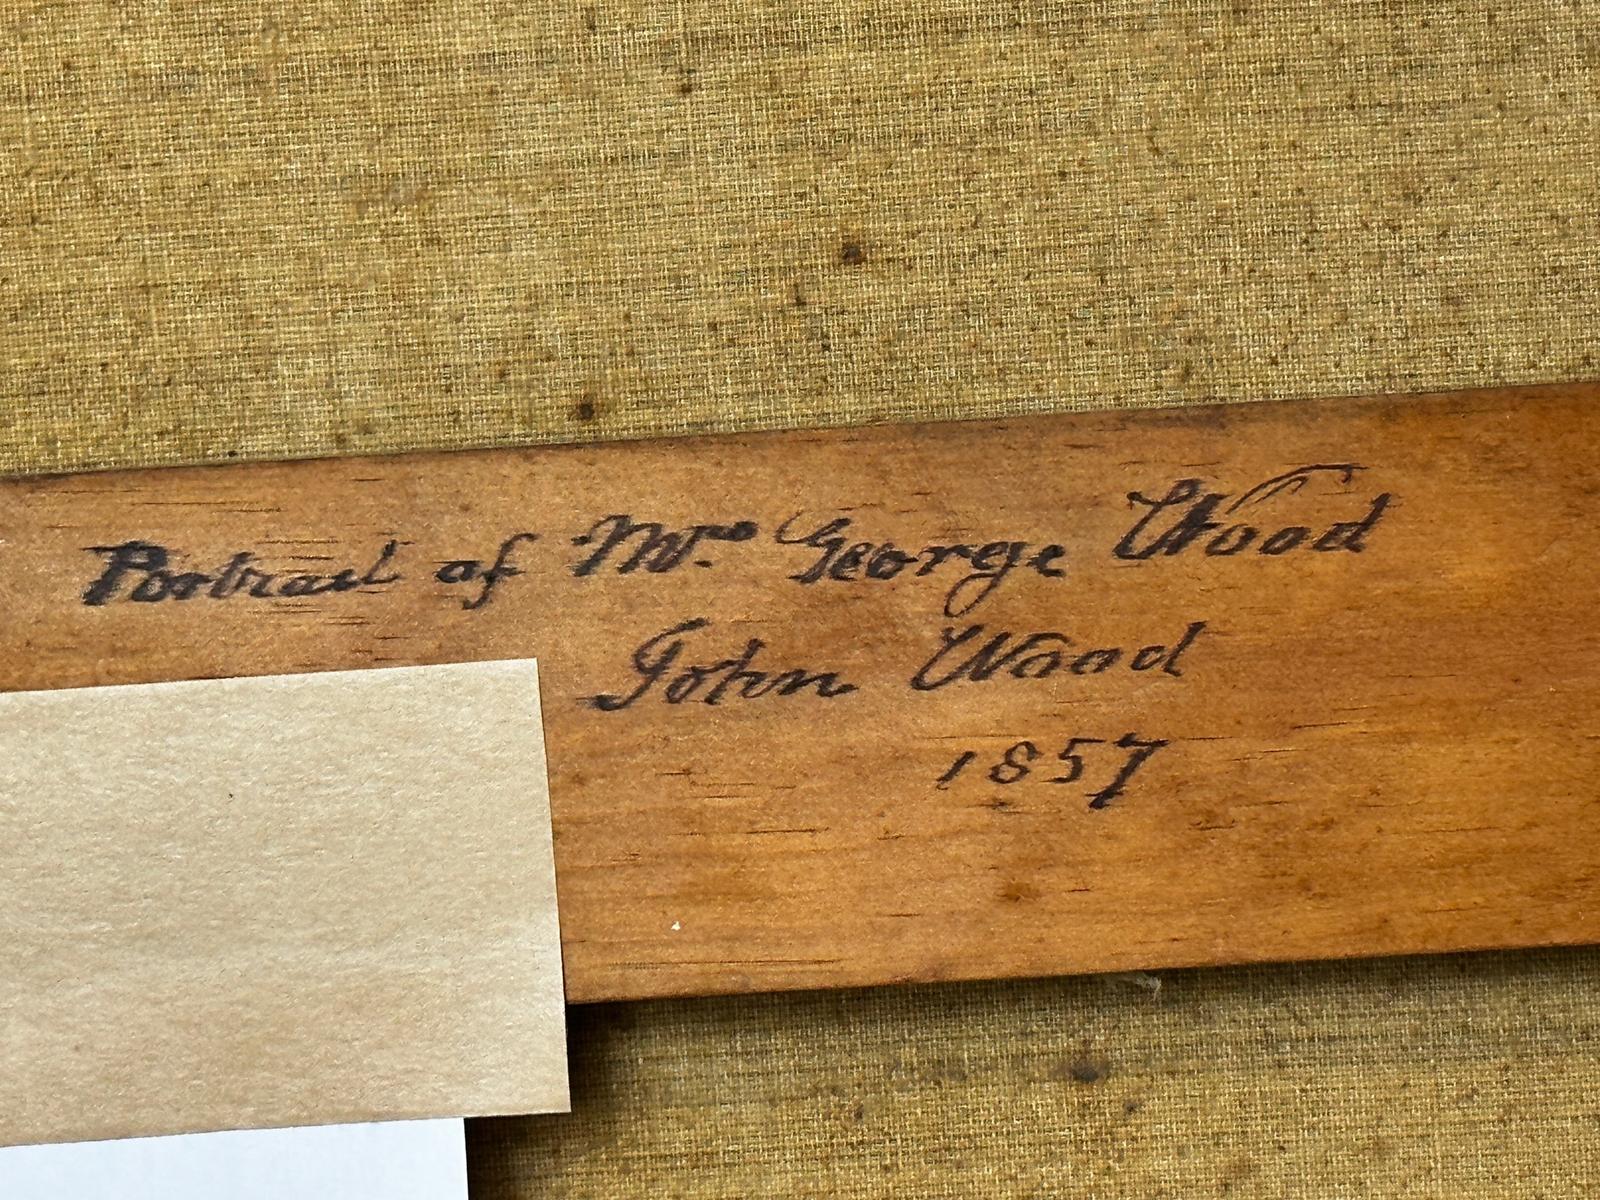 Portrait of Mrs George Wood
John Wood
1857